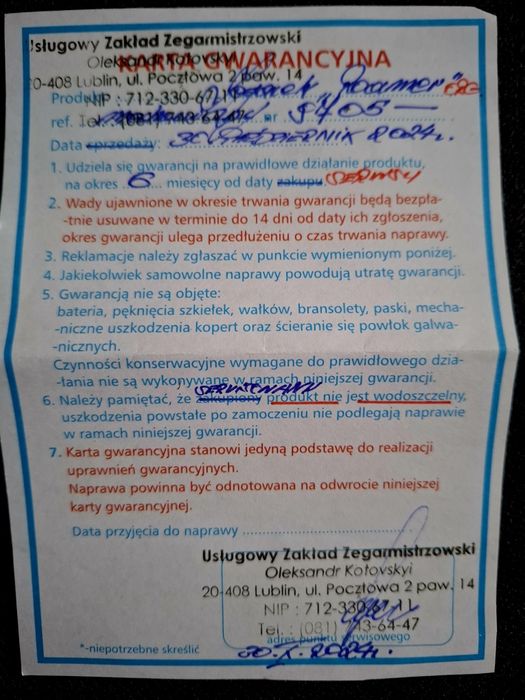 Usługowy Zakład Zegarmistrzowski
Oleksandr Kotovskyi
KARTA GWARANCYJNA
20-408 Lublin, ul. Pocztowa 2 paw. 14
Produkt "Roamer"
NIP : 712-330-67-11
ref. Tel. : (081) 743-64-47 nr 5405 —
Data sprzedaży: 30 PAŹDZIERNIK 2024r.
1. Udziela się gwarancji na prawidłowe działanie produktu,
na okres ..6... miesięcy od daty zakupu SERWISU
2. Wady ujawnione w okresie trwania gwarancji będą bezpła-
-tnie usuwane w terminie do 14 dni od daty ich zgłoszenia,
okres gwarancji ulega przedłużeniu o czas trwania naprawy.
3. Reklamacje należy zgłaszać w punkcie wymienionym poniżej.
4. Jakiekolwiek samowolne naprawy powodują utratę gwarancji.
5. Gwarancją nie są objęte:
bateria, pęknięcia szkiełek, wałków, bransolety, paski, mecha-
-niczne uszkodzenia kopert oraz ścieranie się powłok galwa-
-nicznych.
Czynności konserwacyjne wymagane do prawidłowego dzia-
-łania nie są wykonywane w ramach niniejszej gwarancji.
6. Należy pamiętać, że zakupiony produkt nie jest wodoszczelny,
uszkodzenia powstałe po zamoczeniu nie podlegają naprawie
w ramach niniejszej gwarancji.
7. Karta gwarancyjna stanowi jedyną podstawę do realizacji
uprawnień gwarancyjnych.
Naprawa powinna być odnotowana na odwrocie niniejszej
karty gwarancyjnej.
Data przyjęcia do naprawy ..............................
Usługowy Zakład Zegarmistrzowski
Oleksandr Kotovskyi
20-408 Lublin, ul. Pocztowa 2 paw. 14
NIP : 712-330-67-11
Tel. : (081) 743-64-47
adres punktu serwisowego
*-niepotrzebne skreślić 30.X.2024r.